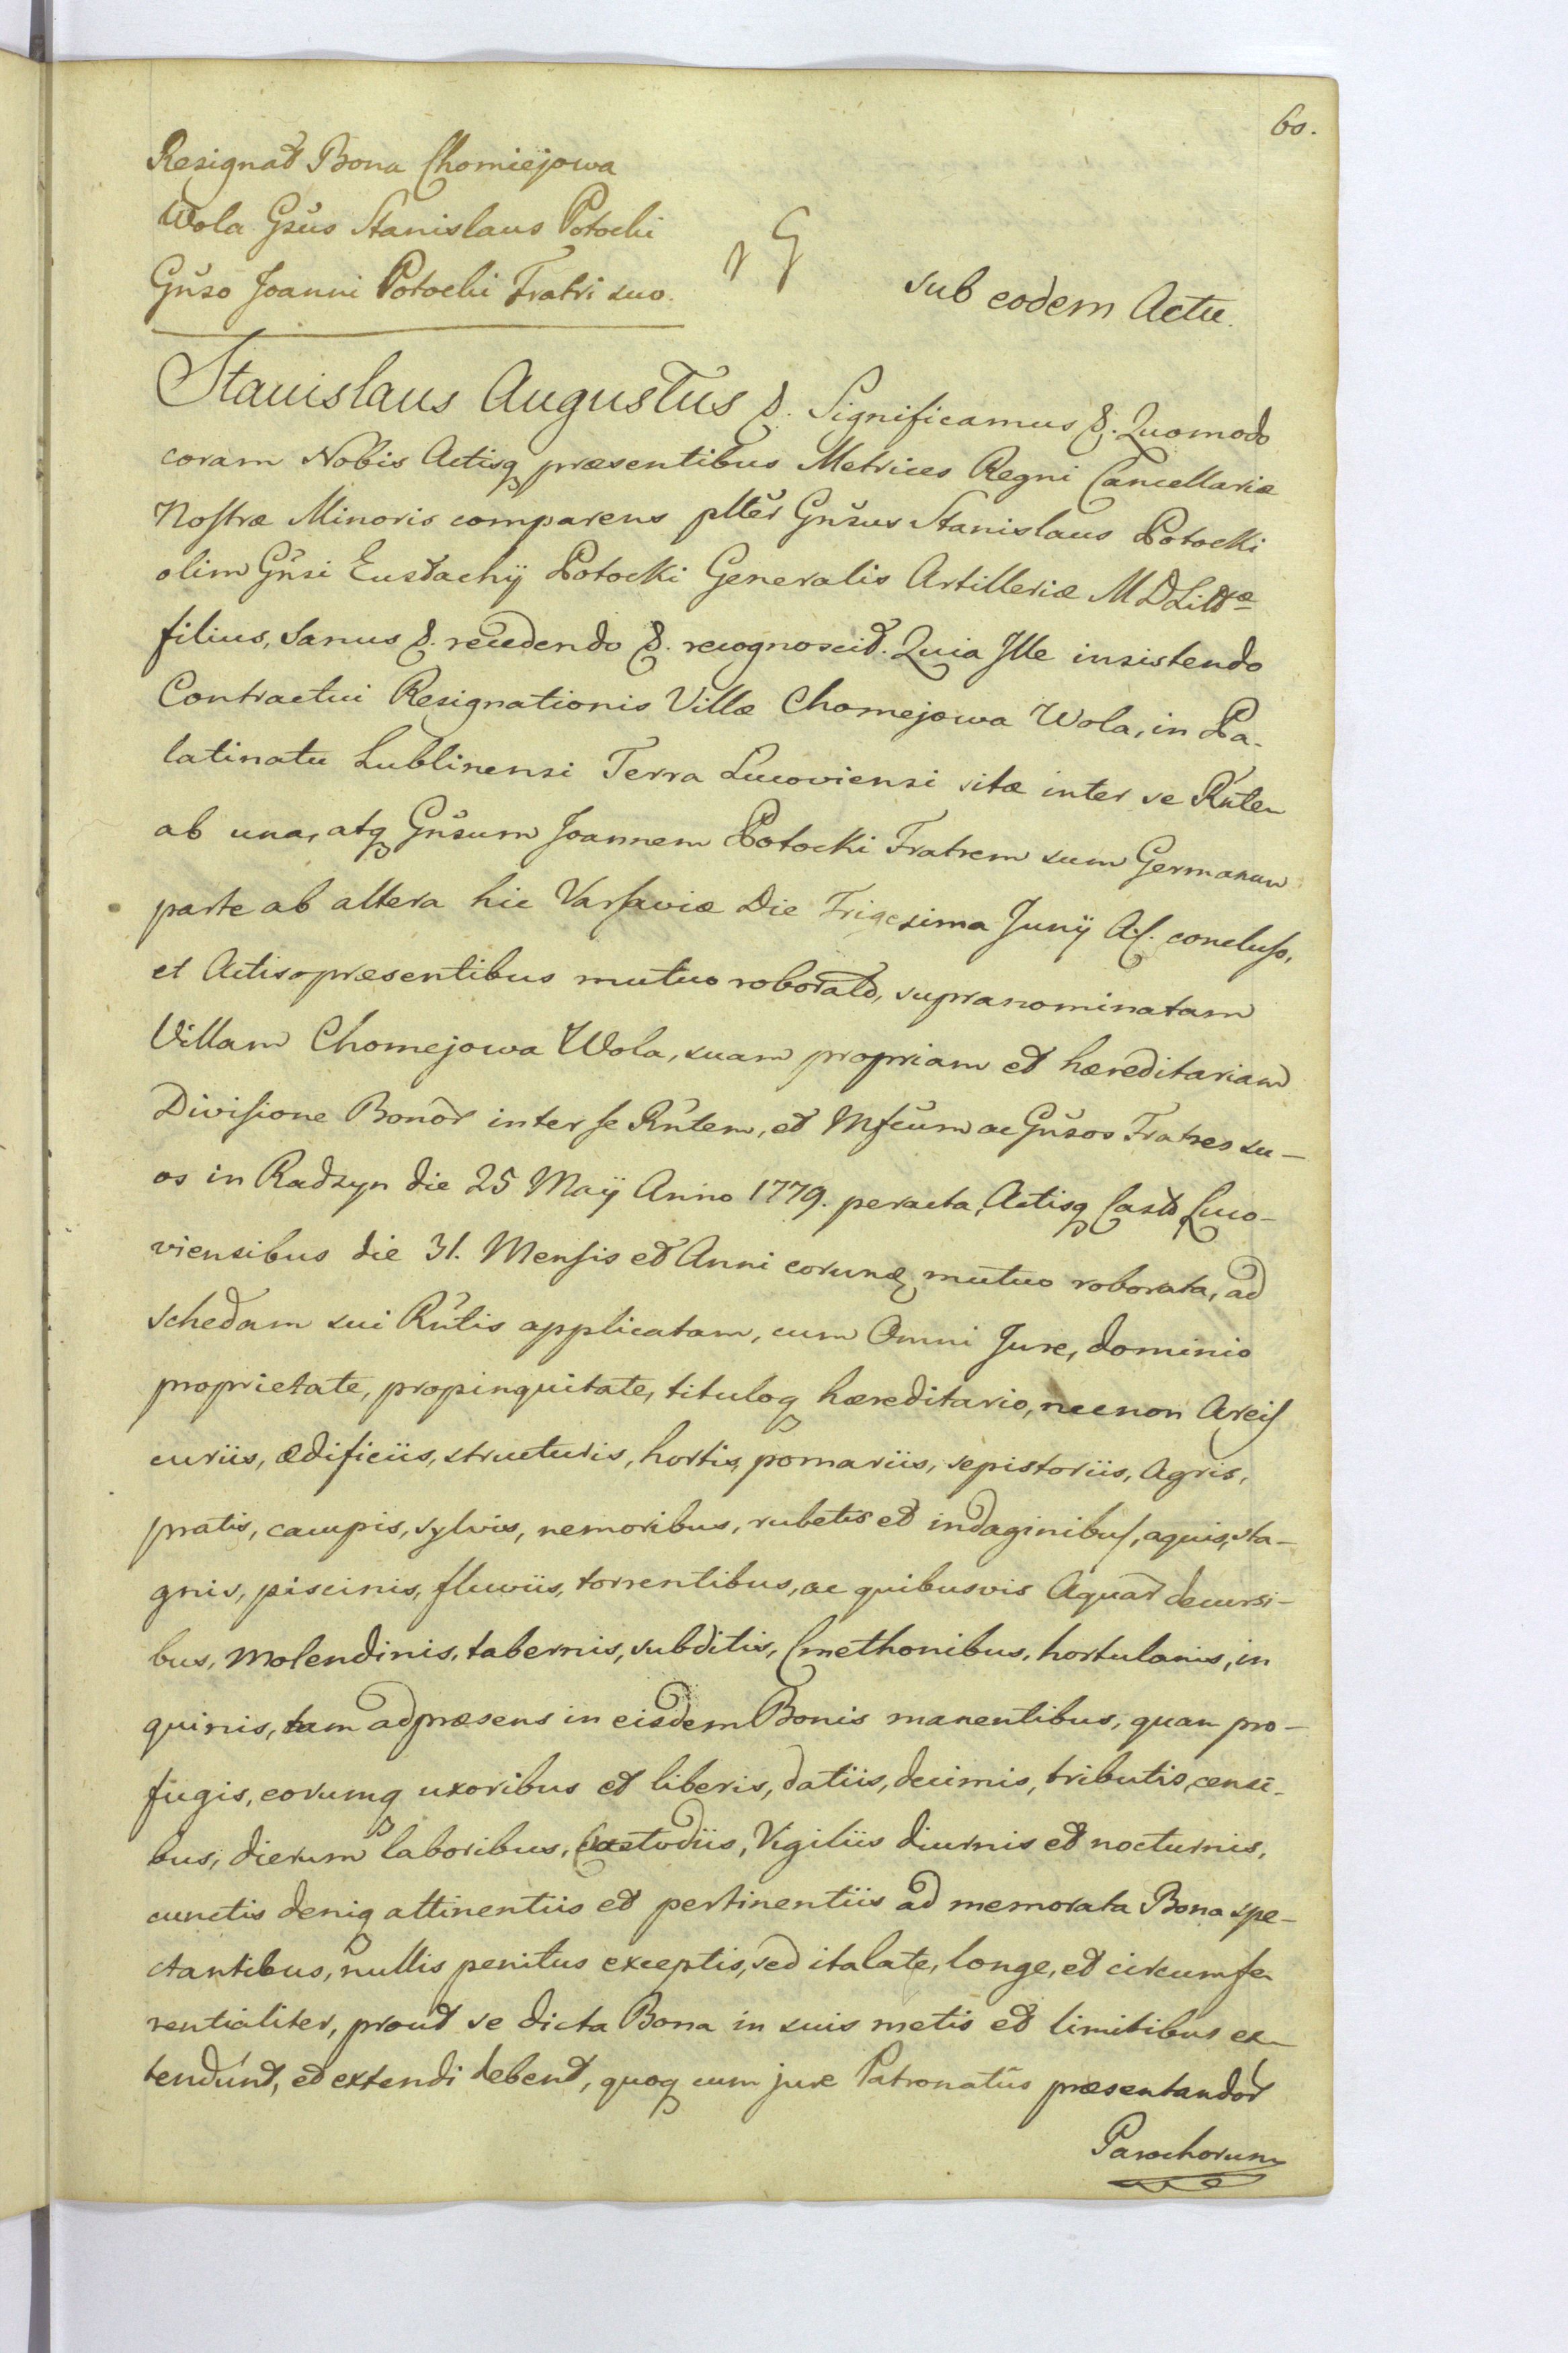 60.
Resignat Bona Chomiejowa
Wola Gsus Stanislaus Potocki
Gnso Joanni Potocki Fratri suo.
sub eodem Actu.
Stanislaus Augustus &. Significamus &. Quomodo
coram Nobis Actisq præsentibus Metrices Regni Cancellariæ
Nostræ Minoris comparens plter Gnsus Stanislaus Potocki
olim Gnsi Eustachij Potocki Generalis Artilleriæ M D Littæ
filius, Sanus &. recedendo &. recognoscit. Quia Ille insistendo
Contractui Resignationis Villæ Chomejowa Wola, in Pa-
latinatu Lublinensi Terra Lucoviensi sitæ inter se Rntem
ab una, atq Gnsum Joannem Potocki Fratrem suum Germanum
parte ab altera hic Varsaviæ Die Trigesima Junij A.C. concluso,
et Actis præsentibus mutuo roborato, supranominatam
Villam Chomejowa Wola, suam propriam et hæreditariam
Divisione Bonor inter se Rntem, et Mfcum ac Gnsos Fratres su-
os in Radzyn die 25 Maij Anno 1779. peracta, Actisq Castr Luco-
viensibus die 31. Mensis et Anni eorund mutuo roborata, ad
schedam sui Rntis applicatam, cum Omni Jure, dominio
proprietate, propinquitate, tituloq hæreditario, necnon Areis
curiis, ædificiis, structuris, hortis, pomariis, sepistoriis, Agris,
pratis, campis, sylvis, nemoribus, rubetis et indaginibus, aquis, sta-
gnis, piscinis, fluviis, torrentibus, ac quibusvis Aquar decursi-
bus, Molendinis, tabernis, subditis, Cmethonibus, hortulanis, in
quinis, tam adpræsens in eisdem Bonis manentibus, quam pro-
fugis, eorumq uxoribus et liberis, datiis, decimis, tributis, censi-
bus, dierum laboribus, Custodiis, Vigiliis diurnis et nocturnis,
cunctis deniq attinentiis et pertinentiis ad memorata Bona spe-
ctantibus, nullis penitus exceptis, sed ita late, longe, et circumfe
rentialiter, prout se dicta Bona in suis metis et limitibus ex-
tendunt, et extendi debent, quoq cum jure Patronatus præsentandor
Parochorum